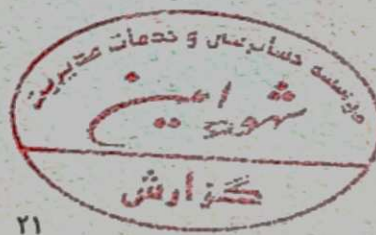 موسسه حسابرسی و خدمات مدیریت
شهود امین
گزارش
۲۱